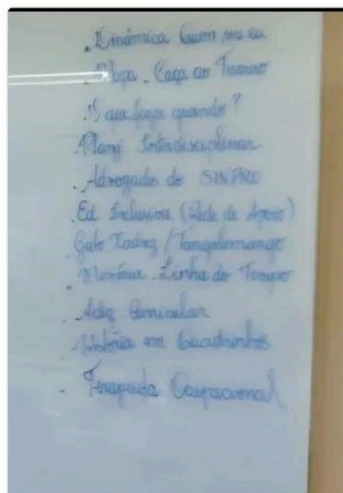 . Dinâmica Quem sou eu
. Mapa - Caça ao Tesouro
. O que fazer quando?
. Planej Interdisciplinar
. Advogados do SINPRO
. Ed. Inclusiva (Rede de Apoio)
. Xadrez / Tangolomango
. Memória - Linha do Tempo
. Adeq Curricular
. História em Quadrinhos
. Terapeuta Ocupacional